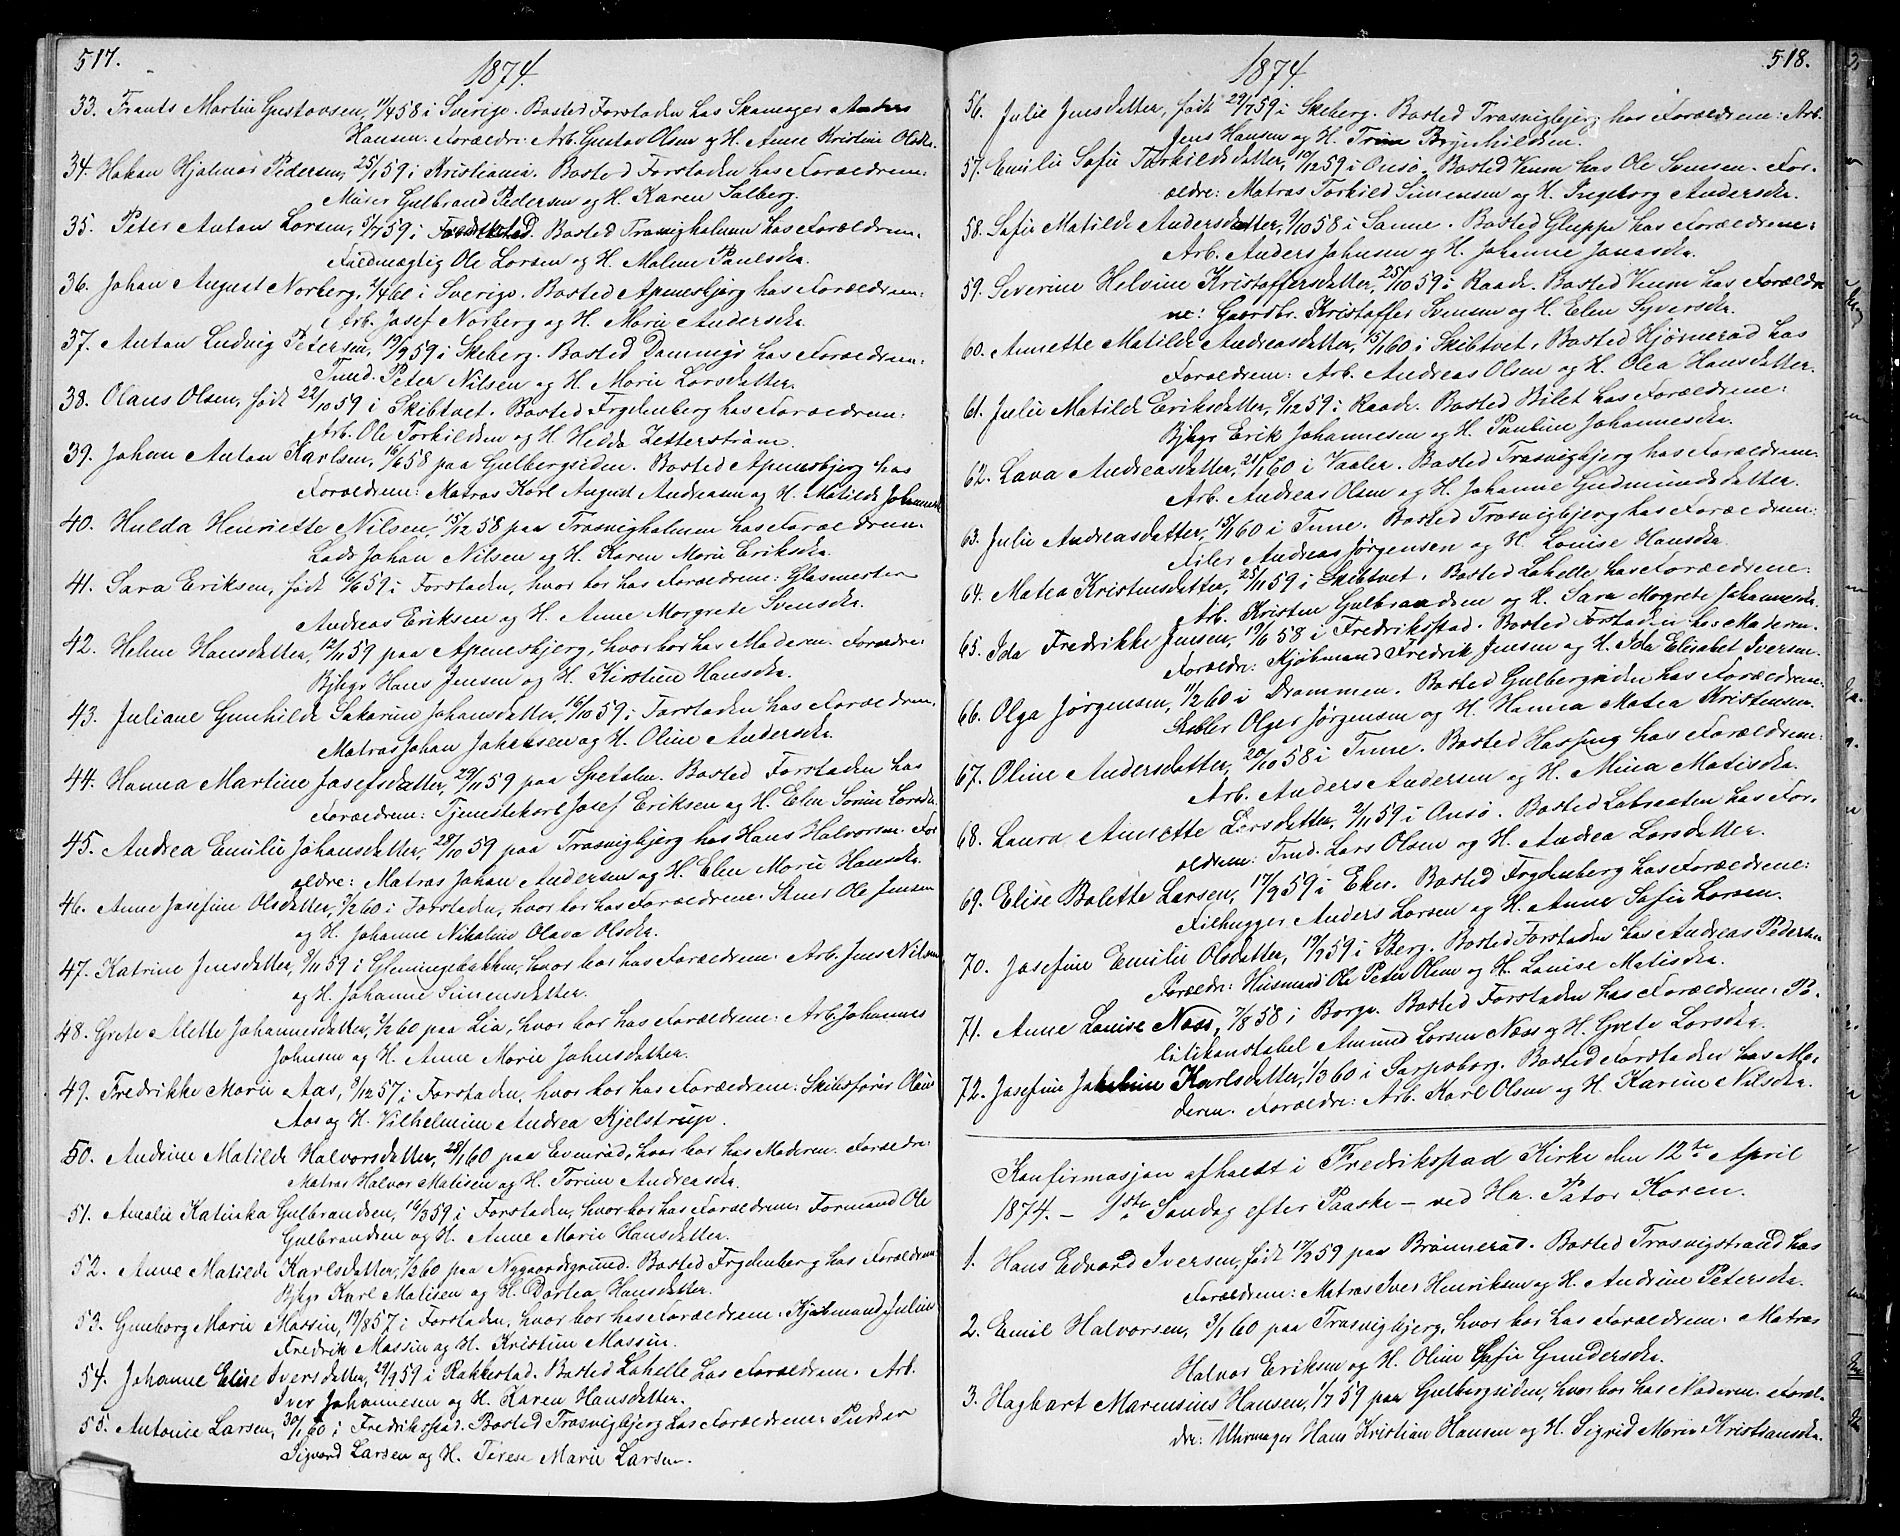 517.
1874.
33. Frants Martin Gustavsen, 11/4 58 i Sverige. Bosted Forstaden hos Skomager Anders
Hansen. Forældre: Arb. Gustav Olsen og H. Anne Kristine Olsdtr.
34. Hakan Hjalmar Pedersen, 25/1 59 i Kristiania. Bosted Forstaden hos Forældrene:
Murer Gulbrand Pedersen og H. Karen Solberg.
35. Peter Anton Larsen, 5/7 59 i Fredrikstad. Bosted Trosvigholmen hos Forældrene.
Fuldmægtig Ole Larsen og H. Malene Paulsdtr.
36. Johan August Norberg, 2/4 60 i Sverige. Bosted Apenesbjerg hos Forældrene:
Arb. Josef Norberg og H. Marie Andersdtr.
37. Anton Ludvig Petersen, 19/9 59 i Skeberg. Bosted Damings hos Forældrene:
Tmd. Peter Nilsen og H. Marie Larsdatter.
38. Olaus Olsen, født 22/10 59 i Skibtvet. Bosted Frydenberg hos Forældrene:
Arb. Ole Torkildsen og H. Hedda Zetterstrøm.
39. Johan Anton Karlsen, 16/6 58 paa Gulbergsiden. Bosted Apenesbjerg hos
Forældrene: Matros Karl August Andreasen og H. Matilde Johannesdtr.
40. Hulda Henriette Nilsen, 15/12 58 paa Trosvigholmen hos Forældrene.
Lods Johan Nilsen og H. Karen Marie Eriksdtr.
41. Sara Eriksen, født 6/6 59 i Forstaden, hvor bor hos Forældrene: Glasmester
Andreas Eriksen og H. Anne Morgrete Svensdtr.
42. Helene Hansdatter, 12/11 59 paa Apenesbjerg, hvor bor hos Moderen. Forældre:
Bjbgr Hans Jensen og H. Kirstine Hansdtr.
43. Juliane Gunhilde Sakarine Johansdatter, 16/10 59 i Forstaden hos Forældrene.
Matros Johan Johansen og H. Oline Andersdtr.
44. Hanna Martine Josefsdatter, 29/11 59 paa Spetalen. Bosted Forstaden hos
Forældrene: Tjenestekarl Josef Eriksen og H. Elen Sorine Larsdtr.
45. Andrea Emilie Johansdatter, 28/10 59 paa Trosvigbjerg hos Hans Halvorsen. For-
ældre: Matros Johan Andersen og H. Elen Marie Hansdtr.
46. Anne Josefine Olsdatter, 3/2 60 i Forstaden, hvor bor hos Forældrene. Stuer Ole Jensen
og H. Johanne Nikoline Olava Olsdtr.
47. Katrine Jensdatter, 9/11 59 i Glemmingebakken, hvor bor hos Forældrene: Arb. Jens Nilsen
og H. Johanne Simensdatter.
48. Grete Alette Johannesdatter, 3/2 60 paa Lia, hvor bor hos Forældrene: Arb. Johannes
Johnsen og H. Anne Marie Johnsdatter.
49. Fredrikke Marie Aas, 9/12 57 i Forstaden, hvor bor hos Forældrene: Skibsfører Olaus
Aas og H. Vilhelmine Andrea Kjelstrup.
50. Andrine Matilde Halvorsdatter, 28/1 60 paa Evenrød, hvor bor hos Moderen. Forældre:
Matros Halvor Matisen og H. Torine Andreasdtr.
51. Amalie Katinka Gulbrandsen, 16/3 59 i Forstaden, hvor bor hos Forældrene Formand Ole
Gulbrandsen og H. Anne Marie Hansdatter.
52. Anne Matilde Karlsdatter, 1/2 60 paa Nygaardsgrund. Bosted Frydenberg hos Forældrene:
Bjbgr Karl Matisen og H. Dortea Hansdatter.
53. Gunborg Marie Massin, 19/8 57 i Forstaden, hvor bor hos Forældrene. Kjøbmand Julius
Fredrik Massin og H. Kristine Massin.
54. Johanne Elise Iversdatter, 29/9 59 i Rakkestad. Bosted Lahelle hos Forældrene. Arb.
Iver Johannesen og H. Karen Hansdatter.
55. Antonie Larsen, 30/1 60 i Fredriksstad. Bosted Trosvigbjerg hos Forældrene: Purder
Sigvard Larsen og H. Terese Marie Larsen.
518.
1874.
56. Julie Jensdatter, født 29/7 59 i Skeberg. Bosted Trosvigbjerg hos Forældrene: Arb.
Jens Hansen og H. Trine Brynhildsen.
57. Emilie Sofie Torkildsdatter, 19/12 59 i Onsø. Bosted Veum hos Ole Svensen. For-
ældre: Matros Torkild Simensen og H. Ingeborg Andersdtr.
58. Sofie Matilde Andersdatter, 9/10 58 i Sanne. Bosted Gluppe hos Forældrene:
Arb. Anders Johnsen og H. Johanne Jonasdtr.
59. Severine Helvine Kristoffersdatter, 25/10 59 i Raade. Bosted Veum hos Forældre
ne: Gaardbr. Kristoffer Svensen og H. Elen Syversdtr.
60. Annette Matilde Andreasdatter, 15/1 60 i Skibtvet. Bosted Hjørnerød hos
Forældrene: Arb. Andreas Olsen og H. Olea Hansdatter.
61. Julie Matilde Eriksdatter, 9/12 59 i Raade. Bosted Bilet hos Forældrene:
Bjbgr Erik Johannesen og H. Pauline Johannesdtr.
62. Lava Andreasdatter, 21/1 60 i Vaaler. Bosted Trosvigbjerg hos Forældrene.
Arb. Andreas Olsen og H. Johanne Gudmundsdatter.
63. Julie Andreasdatter, 15/1 60 i Tune. Bosted Trosvigbjerg hos Forældrene:
Filer Andreas Jørgensen og H. Louise Hansdtr.
64. Matea Kristensdatter, 25/11 59 i Skibtvet. Bosted Lahelle hos Forældrene:
Arb. Kristen Gulbrandsen og H. Sara Mogrete Johannesdtr.
65. Ida Fredrikke Jensen, 19/6 58 i Fredriksstad. Bosted Forstaden hos Moderen.
Forældre: Kjøbmand Fredrik Jensen og H. Ida Elisabet Iversen.
66. Olga Jørgensen, 11/2 60 i Drammen. Bosted Gulbergsiden hos Forældrene:
Stabler Olger Jørgensen og H. Hanna Matea Kristensen.
67. Oline Andersdatter, 20/10 58 i Tune. Bosted Hassing hos Forældrene:
Arb. Anders Andersen og H. Mina Matisdtr.
68. Laura Annette Larsdatter, 2/11 59 i Onsø. Bosted Labraaten hos For-
ældrene: Tmd. Lars Olsen og H. Andrea Larsdatter.
69. Elise Bolette Larsen, 17/9 59 i Eker. Bosted Frydenberg hos Forældrene:
Filhugger Anders Larsen og H. Anne Sofie Larsen.
70. Josefine Emilie Olsdatter, 19/9 59 i Berg. Bosted Forstaden hos Andreas Pedersen
Forældre: Husmand Ole Peter Olsen og H. Louise Matisdtr.
71. Anne Louise Næss, 7/8 58 i Borge. Bosted Forstaden hos Forældrene: Po-
litikonstabel Amund Larsen Næss og H. Grete Larsdtr.
72. Josefine Jakobine Karlsdatter, 1/3 60 i Sarpsborg. Bosted Forstaden hos Mo-
deren. Forældre: Arb. Karl Olsen og H. Karine Nilsdtr.
Konfirmasjon afholdt i Fredriksstad Kirke den 12te April
1874. – 1ste Søndag efter Paaske – ved Hr. Pastor Koren.
1. Hans Edvard Iversen, født 17/9 59 paa Brønnerød. Bosted Trosvigstrand hos
Forældrene: Matros Iver Henriksen og H. Andrine Petersdtr.
2. Emil Halvorsen, 3/1 60 paa Trosvigbjerg, hvor bor hos Forældrene: Matros
Halvor Eriksen og H. Oline Sofie Gundersdtr.
3. Hagbart Marensius Hansen, 1/7 59 paa Gulbergsiden, hvor bor hos Moderen. Foræl-
dre: Uhrmager Hans Kristian Hansen og H. Sigrid Marie Kristiansdtr.